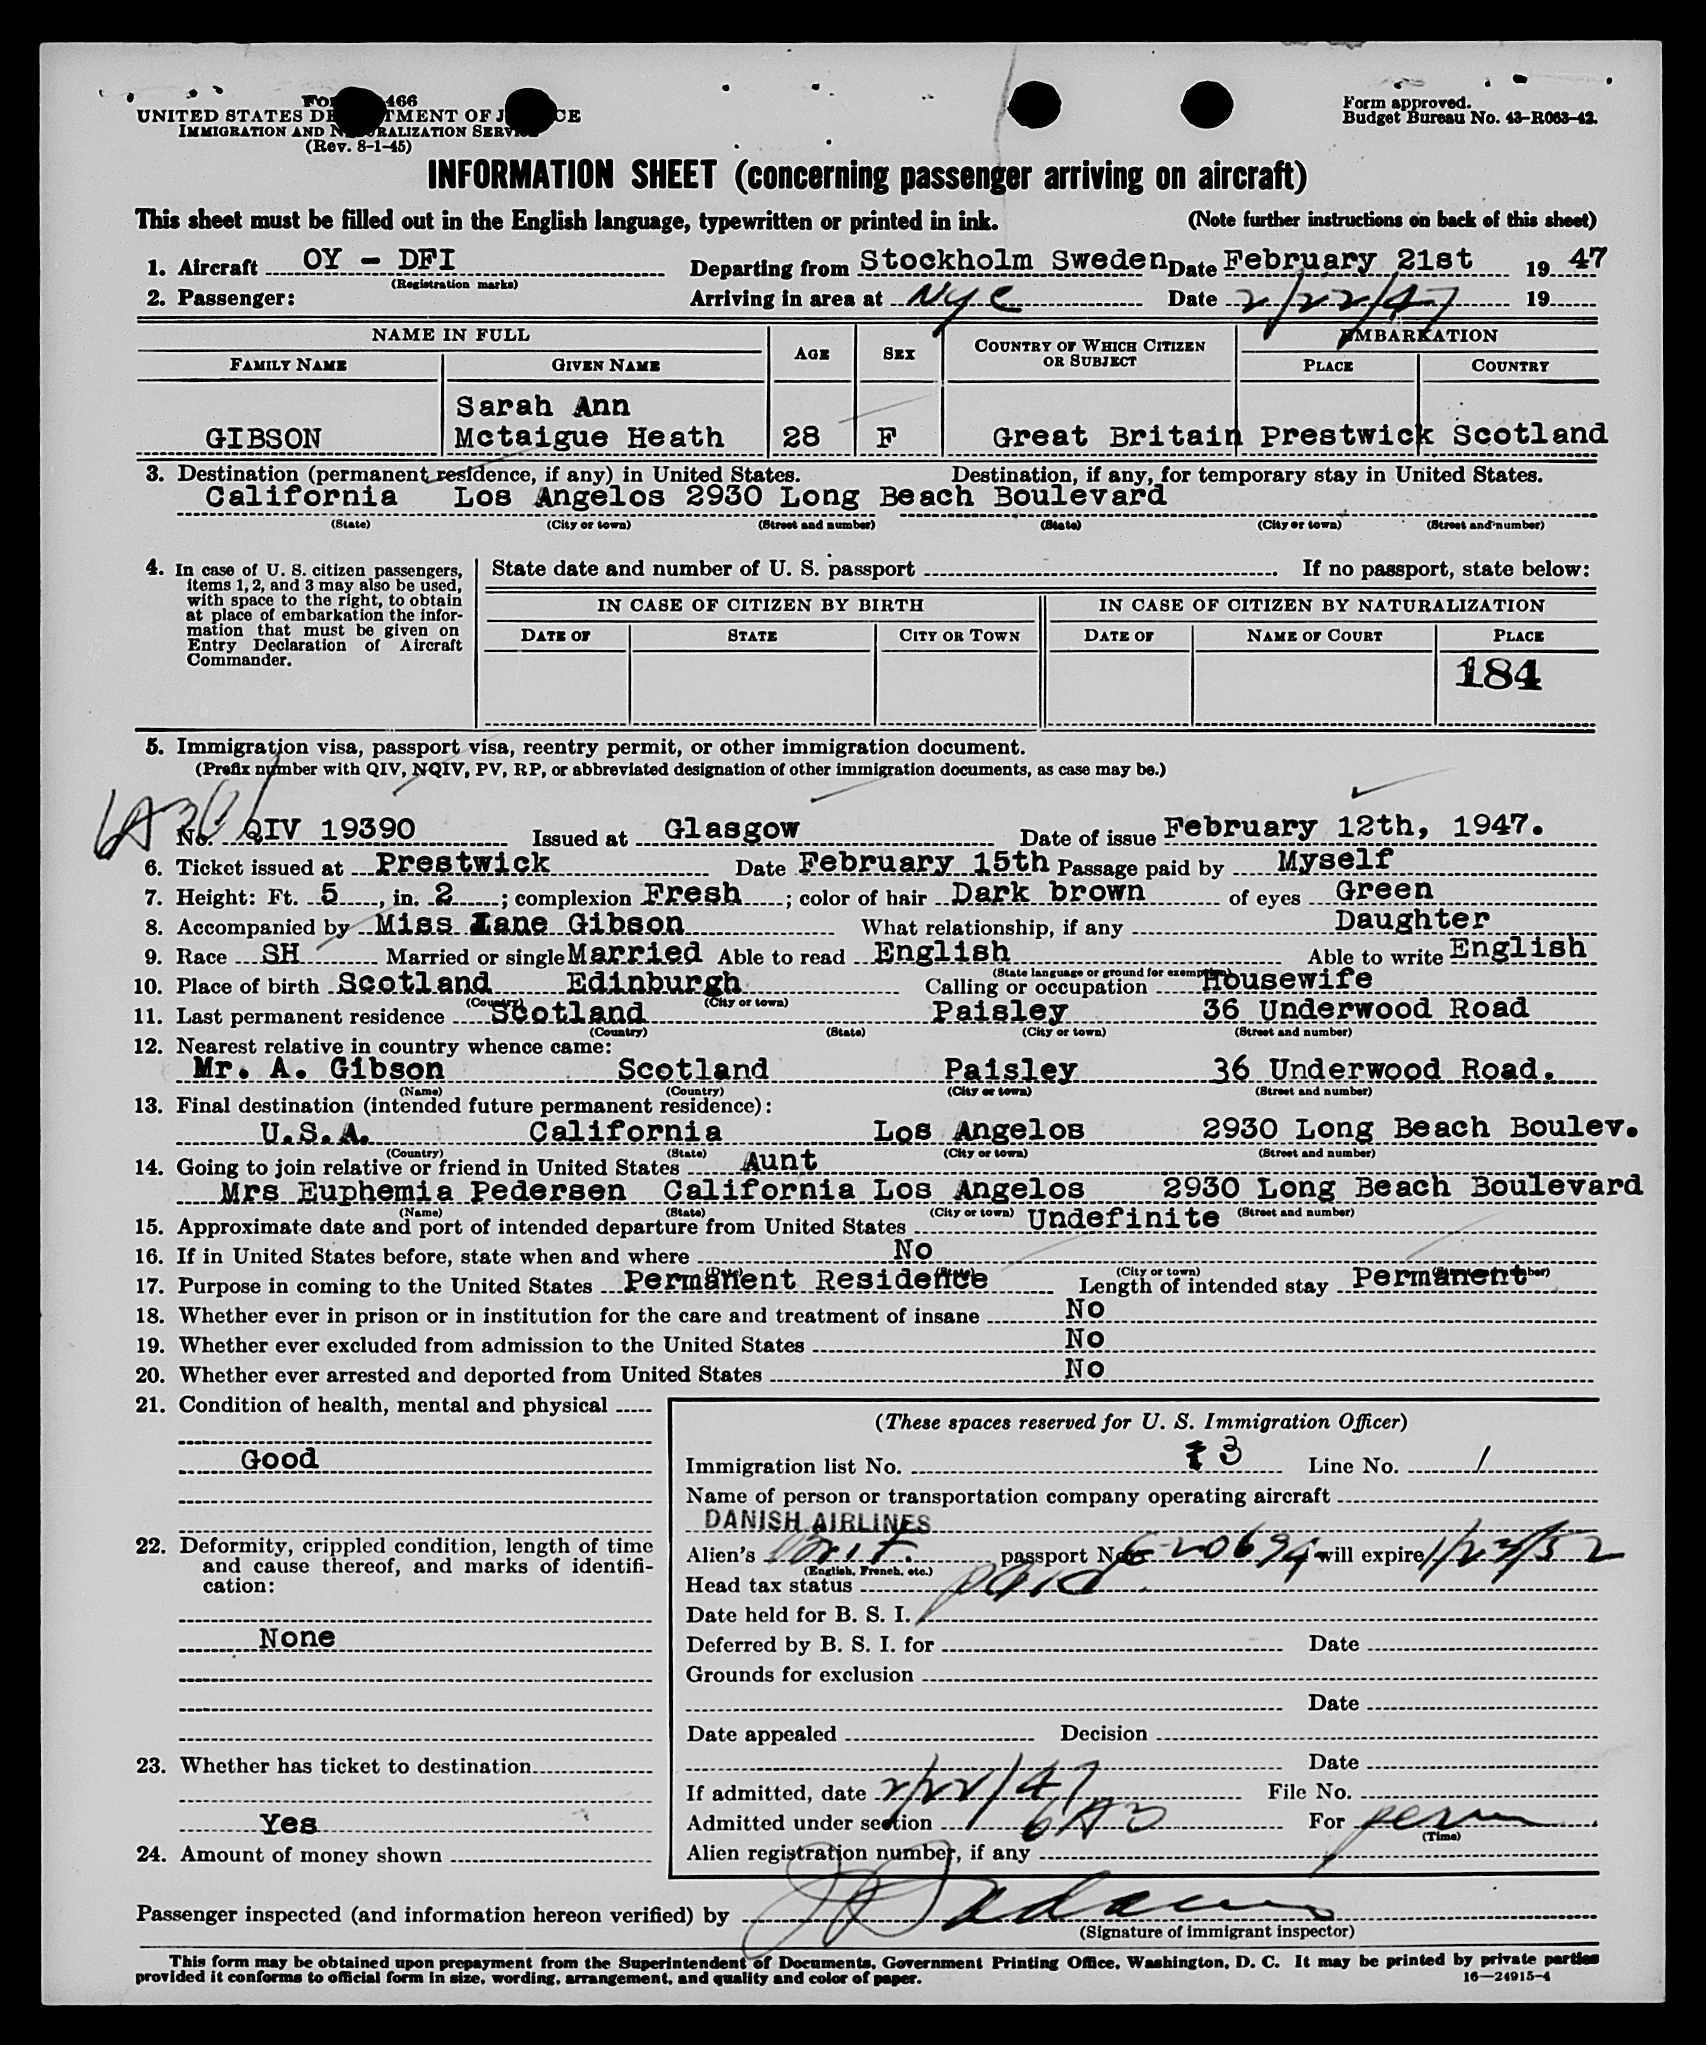 Form I-466
UNITED STATES DEPARTMENT OF JUSTICE
IMMIGRATION AND NATURALIZATION SERVICE
(Rev. 8-1-45)
Form approved.
Budget Bureau No. 43-R063-42.
INFORMATION SHEET (concerning passenger arriving on aircraft)
This sheet must be filled out in the English language, typewritten or printed in ink. (Note further instructions on back of this sheet)
1. Aircraft OY - DFI Departing from Stockholm Sweden Date February 21st 1947
(Registration marks)
2. Passenger: Arriving in area at NYC Date 2/22/47 19
NAME IN FULL AGE SEX COUNTRY OF WHICH CITIZEN OR SUBJECT EMBARKATION
FAMILY NAME GIVEN NAME PLACE COUNTRY
Sarah Ann
GIBSON Mctaigue Heath 28 F Great Britain Prestwick Scotland
3. Destination (permanent residence, if any) in United States. Destination, if any, for temporary stay in United States.
California Los Angelos 2930 Long Beach Boulevard
(State) (City or town) (Street and number) (State) (City or town) (Street and number)
4. In case of U. S. citizen passengers, items 1, 2, and 3 may also be used, with space to the right, to obtain at place of embarkation the information that must be given on Entry Declaration of Aircraft Commander.
State date and number of U. S. passport If no passport, state below:
IN CASE OF CITIZEN BY BIRTH IN CASE OF CITIZEN BY NATURALIZATION
DATE OF STATE CITY OR TOWN DATE OF NAME OF COURT PLACE
184
5. Immigration visa, passport visa, reentry permit, or other immigration document.
(Prefix number with QIV, NQIV, PV, RP, or abbreviated designation of other immigration documents, as case may be.)
No. QIV 19390 Issued at Glasgow Date of issue February 12th, 1947.
6. Ticket issued at Prestwick Date February 15th Passage paid by Myself
7. Height: Ft. 5, in. 2; complexion Fresh; color of hair Dark brown of eyes Green
8. Accompanied by Miss Lane Gibson What relationship, if any Daughter
9. Race SH Married or single Married Able to read English Able to write English
(State language or ground for exemption)
10. Place of birth Scotland Edinburgh Calling or occupation Housewife
(Country) (City or town)
11. Last permanent residence Scotland Paisley 36 Underwood Road
(Country) (State) (City or town) (Street and number)
12. Nearest relative in country whence came:
Mr. A. Gibson Scotland Paisley 36 Underwood Road.
(Name) (Country) (City or town) (Street and number)
13. Final destination (intended future permanent residence):
U.S.A. California Los Angelos 2930 Long Beach Boulev.
(Country) (State) (City or town) (Street and number)
14. Going to join relative or friend in United States Aunt
Mrs Euphemia Pedersen California Los Angelos 2930 Long Beach Boulevard
(Name) (State) (City or town) (Street and number)
15. Approximate date and port of intended departure from United States Undefinite
16. If in United States before, state when and where No
(Date) (State) (City or town) (Street and number)
17. Purpose in coming to the United States Permanent Residence Length of intended stay Permanent
18. Whether ever in prison or in institution for the care and treatment of insane No
19. Whether ever excluded from admission to the United States No
20. Whether ever arrested and deported from United States No
21. Condition of health, mental and physical
Good
22. Deformity, crippled condition, length of time and cause thereof, and marks of identification:
None
23. Whether has ticket to destination
Yes
24. Amount of money shown
(These spaces reserved for U. S. Immigration Officer)
Immigration list No. 3 Line No. 1
Name of person or transportation company operating aircraft
DANISH AIRLINES
Alien's Brit. passport No. will expire 1/23/52
(English, French, etc.)
Head tax status paid
Date held for B. S. I.
Deferred by B. S. I. for Date
Grounds for exclusion
Date
Date appealed Decision
Date
If admitted, date 2/22/47 File No.
Admitted under section 6A3 For perm
(Time)
Alien registration number, if any
Passenger inspected (and information hereon verified) by
(Signature of immigrant inspector)
This form may be obtained upon prepayment from the Superintendent of Documents, Government Printing Office, Washington, D. C. It may be printed by private parties
provided it conforms to official form in size, wording, arrangement, and quality and color of paper. 16—24915-4